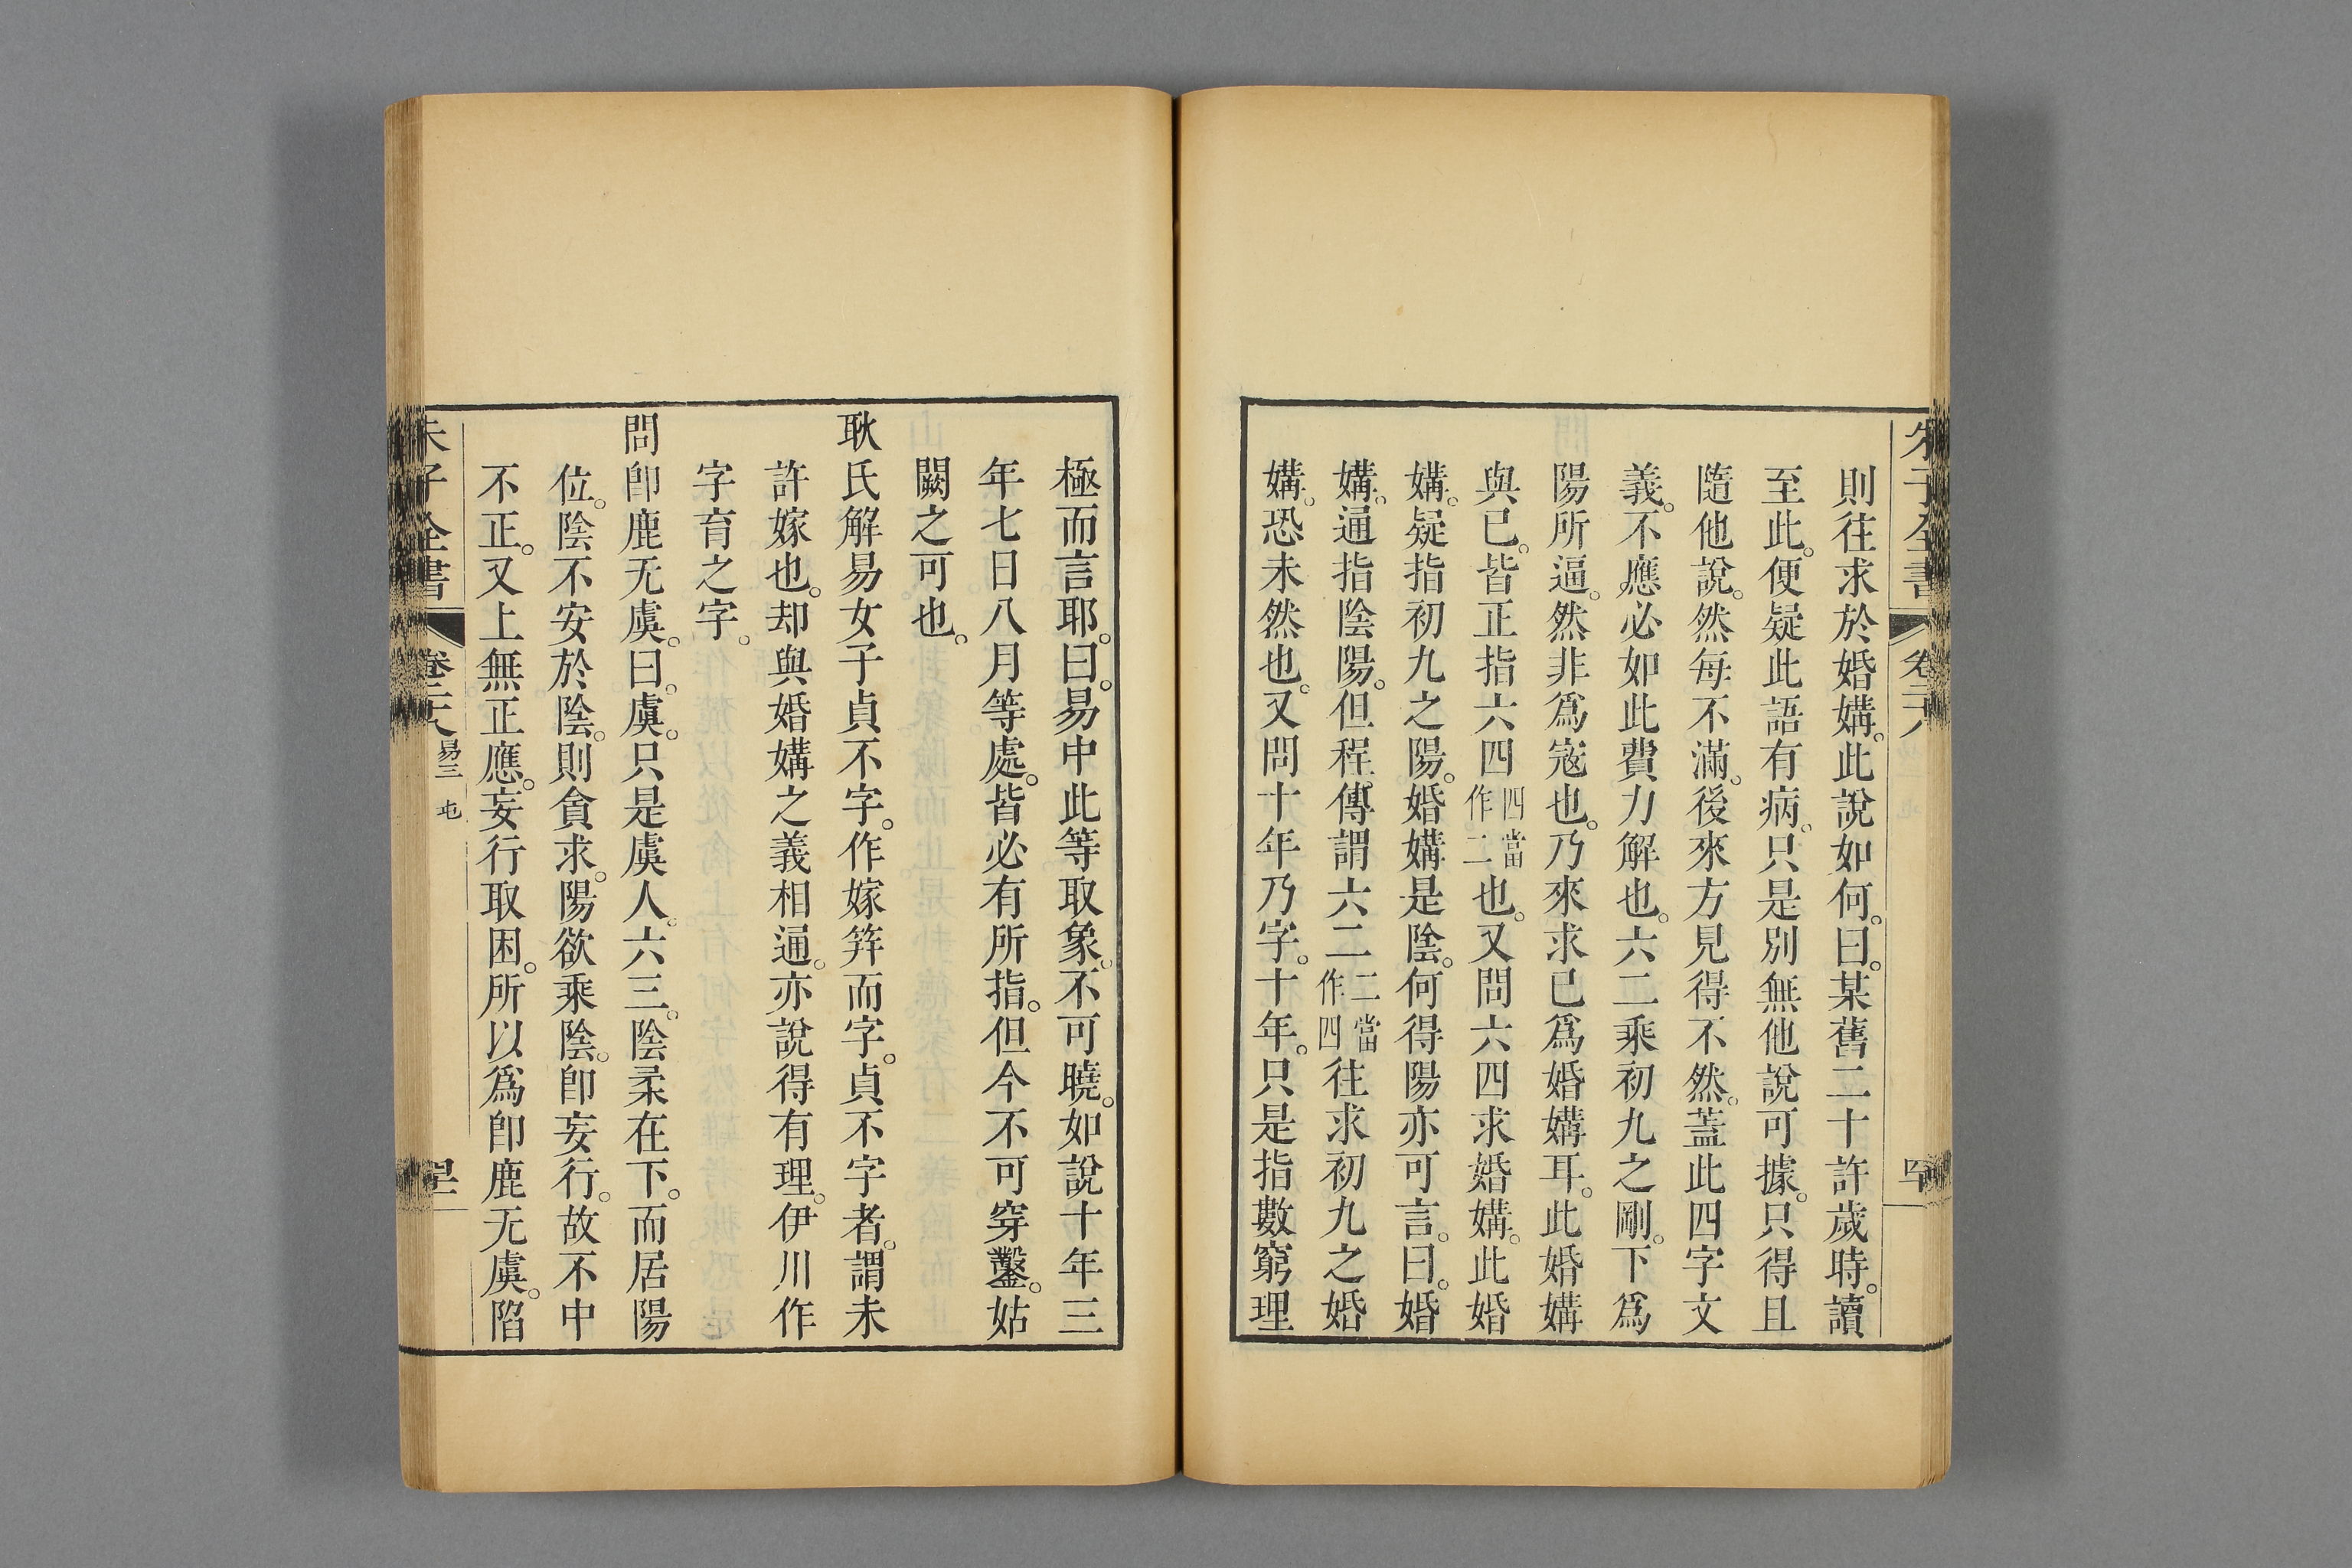 朱子全書 卷二十八 四十
則往求於婚媾。此說如何。曰。某舊二十許歲時。讀
至此。便疑此語有病。只是別無他說可據。只得且
隨他說。然每不滿。後來方見得不然。蓋此四字文
義。不應必如此費力解也。六二乘初九之剛。下為
陽所逼。然非為寇也。乃來求己為婚媾耳。此婚媾
與已。皆正指六四四當作二也。又問六四求婚媾。此婚
媾。疑指初九之陽。婚媾是陰。何得陽亦可言。曰。婚
媾。通指陰陽。但程傳謂六二二當作四往求初九之婚
媾。恐未然也。又問十年乃字。十年。只是指數窮理
極而言耶。曰。易中此等取象。不可曉。如說十年三
年七日八月等處。皆必有所指。但今不可穿鑿。姑
闕之可也。
耿氏解易女子貞不字。作嫁笄而字。貞不字者。謂未
許嫁也。却與婚媾之義相通。亦說得有理。伊川作
字育之字。
問卽鹿无虞。曰。虞。只是虞人。六三。陰柔在下。而居陽
位。陰不安於陰。則貪求。陽欲乘陰。卽妄行。故不中
不正。又上無正應。妄行取困。所以為卽鹿无虞。陷
朱子全書 卷二十八 易三 屯